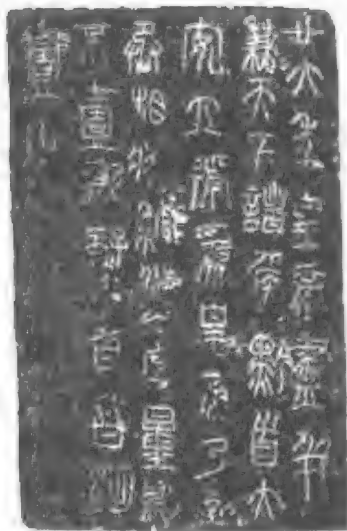 廿六年皇帝盡并
兼天下諸侯黔首大
安立號為皇帝乃詔
丞相狀綰法度量則
不壹歉疑者皆明
壹之